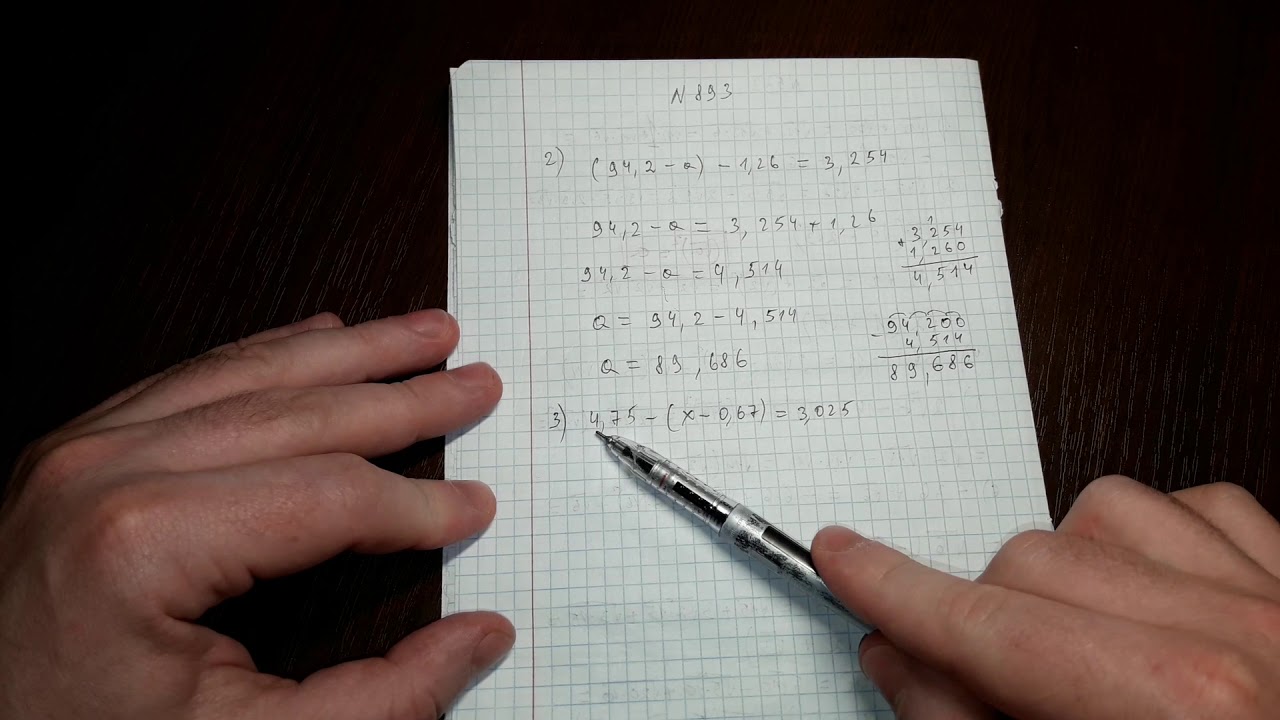 N 893
2) (94,2 - a) - 1,26 = 3,254
94,2 - a = 3,254 + 1,26
1
+ 3,254
1,260
4,514
94,2 - a = 4,514
a = 94,2 - 4,514
- 94,200
4,514
89,686
a = 89,686
3) 4,75 - (x - 0,67) = 3,025